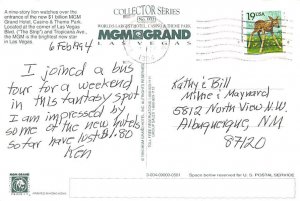 A nine-story lion watches over the
entrance of the new $1 billion MGM
Grand Hotel, Casino & Theme Park.
Located on the corner of Las Vegas
Blvd. ("The Strip") and Tropicana Ave.,
the MGM is the brightest new star
in Las Vegas.
COLLECTOR SERIES
MGM GRAND
LAS VEGAS
19 USA
6 Feb 1994
I joined a bus
tour for a weekend
in this fantasy spot
I am impressed by
some of the new hotels
So far have lost $1.80
Ken
Kathy & Bill
Mike & Maynard
5812 North View N.W.
Albuquerque, NM
87120
Space below reserved for U.S. POSTAL SERVICE